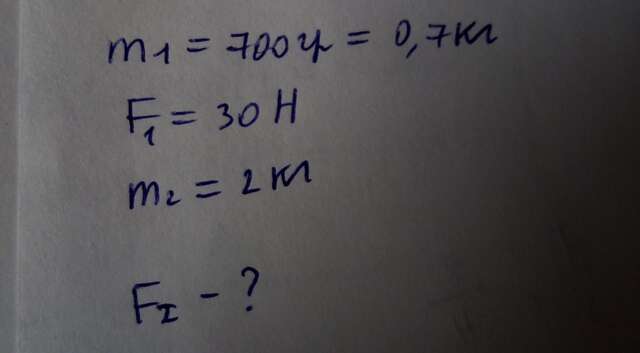 m₁ = 700гр = 0,7кг
F₁ = 30 Н
m₂ = 2 кг
F₂ - ?